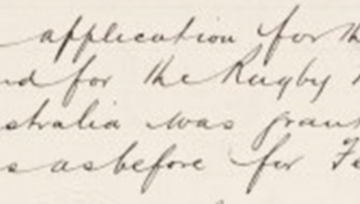 application for th
nd for the Rugby
stralia was grant
s as before for Fe